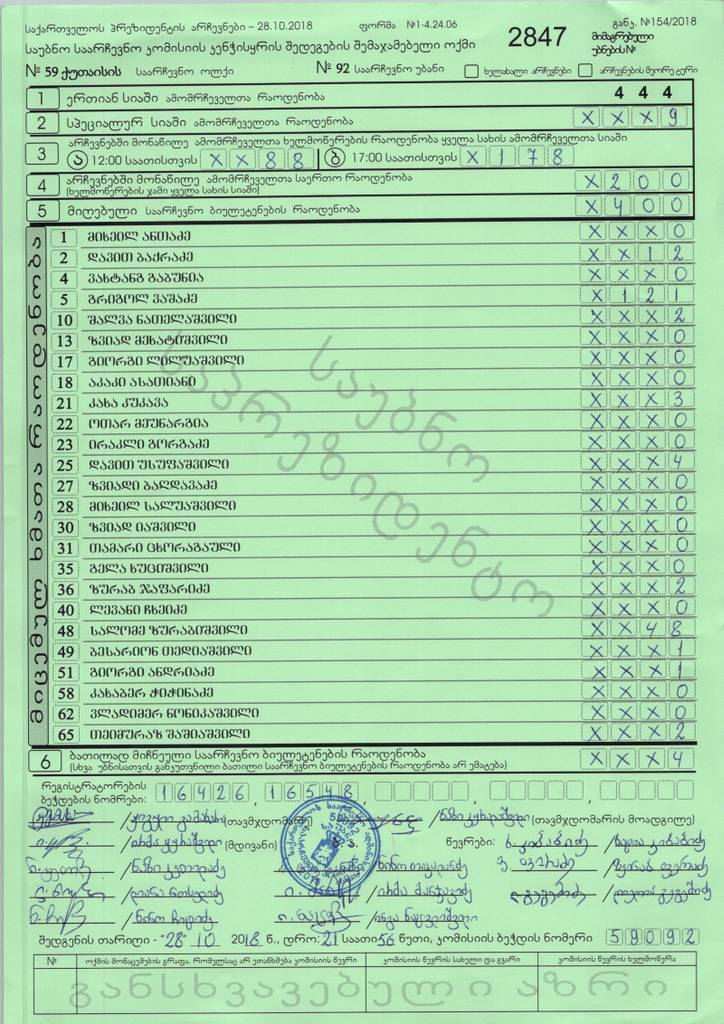 საქართველოს პრეზიდენტის არჩევნები – 28.10.2018 ფორმა №1-4.24.06 განკ. №154/2018
საუბნო საარჩევნო კომისიის კენჭისყრის შედეგების შემაჯამებელი ოქმი 2847 მიმაგრებული უბნების №
№ 59 ქუთაისის საარჩევნო ოლქი № 92 საარჩევნო უბანი ხელახალი არჩევნები არჩევნების მეორე ტური
1 ერთიან სიაში ამომრჩეველთა რაოდენობა 4 4 4
2 სპეციალურ სიაში ამომრჩეველთა რაოდენობა X X X 9
3 არჩევნებში მონაწილე ამომრჩეველთა ხელმოწერების რაოდენობა ყველა სახის ამომრჩეველთა სიაში
ა 12:00 საათისთვის X X 8 8 ბ 17:00 საათისთვის X 1 7 8
4 არჩევნებში მონაწილე ამომრჩეველთა საერთო რაოდენობა X 2 0 0
(ხელმოწერების ჯამი ყველა სახის სიაში)
5 მიღებული საარჩევნო ბიულეტენების რაოდენობა X 4 0 0
მიცემულ ხმათა რაოდენობა
1 მიხეილ ანთაძე X X X 0
2 დავით ბაქრაძე X X 1 2
4 ვახტანგ გაბუნია X X X 0
5 გრიგოლ ვაშაძე X 1 2 1
10 შალვა ნათელაშვილი X X X 2
13 ზვიად მეხატიშვილი X X X 0
17 გიორგი ლილუაშვილი X X X 0
18 აკაკი ასათიანი X X X 0
21 კახა კუკავა X X X 3
22 ოთარ მეუნარგია X X X 0
23 ირაკლი გორგაძე X X X 0
25 დავით უსუფაშვილი X X X 4
27 ზვიადი ბაღდავაძე X X X 0
28 მიხეილ სალუაშვილი X X X 0
30 ზვიად იაშვილი X X X 0
31 თამარი ცხორაგაული X X X 0
35 გელა ხუციშვილი X X X 0
36 ზურაბ ჯაფარიძე X X X 2
40 ლევანი ჩხეიძე X X X 0
48 სალომე ზურაბიშვილი X X 4 8
49 ბესარიონ თედიაშვილი X X X 1
51 გიორგი ანდრიაძე X X X 1
58 კახაბერ ჭიჭინაძე X X X 0
62 ვლადიმერ ნონიკაშვილი X X X 0
65 თეიმურაზ შაშიაშვილი X X X 2
საუბნო
საპრეზიდენტო
6 ბათილად მიჩნეული საარჩევნო ბიულეტენების რაოდენობა X X X 4
(სხვა უბნისათვის განკუთვნილი ბათილი საარჩევნო ბიულეტენების რაოდენობა არ ემატება)
რეგისტრატორების ბეჭდების ნომრები: 16426, 16548
(თავმჯდომარე) (თავმჯდომარის მოადგილე)
(მდივანი) წევრები:
შედგენის თარიღი - "28" 10 2018 წ., დრო: 21 საათი 56 წუთი, კომისიის ბეჭდის ნომერი 59092
№ ოქმის მონაცემების გრაფა, რომელსაც არ ეთანხმება კომისიის წევრი კომისიის წევრის სახელი და გვარი კომისიის წევრის ხელმოწერა
განსხვავებული აზრი